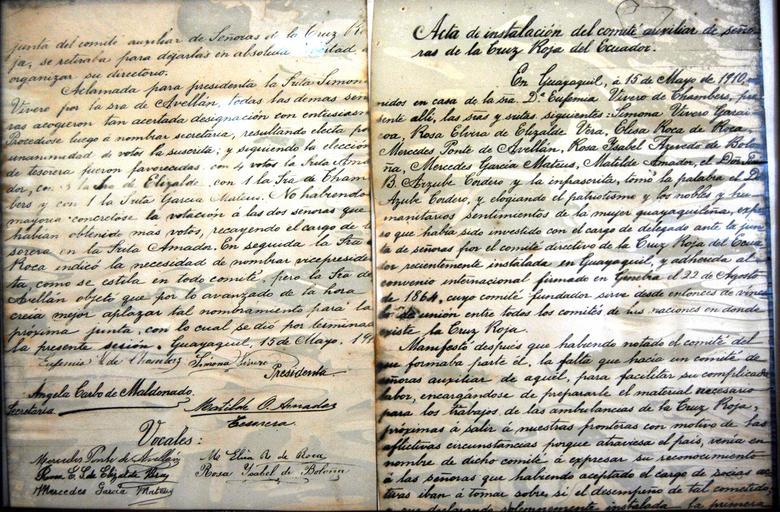 junta del comité auxiliar de Señoras de la Cruz Ro
ja, se retiraba para dejarlas en absoluta libertad de
organizar su directorio.
Aclamada para presidenta la Srita Simona
Vivero por la sra de Avellán, todas las demas señ
ras acogieron tan acertada designación con entusiasm
Procediose luego á nombrar secretaria, resultando electa por
unanimidad de votos la suscrita; y siguiendo la elección
de tesorera fueron favorecidas con 4 votos la Srita Ama
dor, con 3 la sra de Elizalde, con 1 la Sra de Cham
bers y con 1 la Srita García Mateus. No habiendo
mayoria concretóse la votación á las dos señoras que
habían obtenido mas votos, recayendo el cargo de te
sorera en la Srita Amador. En seguida la Sra
Roca indicó la necesidad de nombrar vicepreside
ta, como se estila en todo comité, pero la Sra de
Avellán objetó que por lo avanzado de la hora
creia mejor aplazar tal nombramiento para la
próxima junta, con lo cual se dió por terminada
la presente sesión. Guayaquil, 15 de Mayo, 191
Eufemia V. de Chambers Simona Vivero
Presidenta
Angela Carbo de Maldonado.
Secretaria
Matilde A. Amador
Tesorera
Vocales:
Mercedes Ponte de Avellán M. Elisa R. de Roca
Rosa E. S. de Elizalde Vera Rosa Ysabel de Boloña
Mercedes García Mateus
Acta de instalación del comité auxiliar de seño-
ras de la Cruz Roja del Ecuador.
En Guayaquil, á 15 de Mayo de 1910,
nidos en casa de la sra. Dª Eufemia Vivero de Chambers, pre
sente allí, las sras y sritas siguientes: Simona Vivero Garai
coa, Rosa Elvira de Elizalde Vera, Elisa Roca de Roca,
Mercedes Ponte de Avellán, Rosa Ysabel Azevedo de Bolo
ña, Mercedes García Mateus, Matilde Amador, el Don
B. Arzube Cordero y la infrascrita, tomó la palabra el D
Azube Cordero, y elogiando el patriotismo y los nobles y hu
manitarios sentimientos de la mujer guayaquileña, expu
so que había sido investido con el cargo de delegado ante la jun
ta de señoras por el comité directivo de la Cruz Roja del Ecua
dor recientemente instalada en Guayaquil, y adherida al
convenio internacional firmado en Ginebra el 22 de Agosto
de 1864, cuyo comité fundador sirve desde entonces de víncu
lo de unión entre todos los comités de las naciones en donde
existe la Cruz Roja.
Manifestó después que habiendo notado el comité del
que formaba parte él, la falta que hacía un comité de
señoras auxiliar de aquel, para facilitar su complicada
labor, encargándose de prepararle el material necesario
para los trabajos de las ambulancias de la Cruz Roja,
próximas á salir á nuestras fronteras con motivo de las
aflictivas circunstancias porque atraviesa el país, venia en
nombre de dicho comité á expresar su reconocimiento
á las señoras que habiendo aceptado el cargo de socias ac
tivas iban á tomar sobre si el desempeño de tal cometido,
que declarando solemnemente instalada la primera